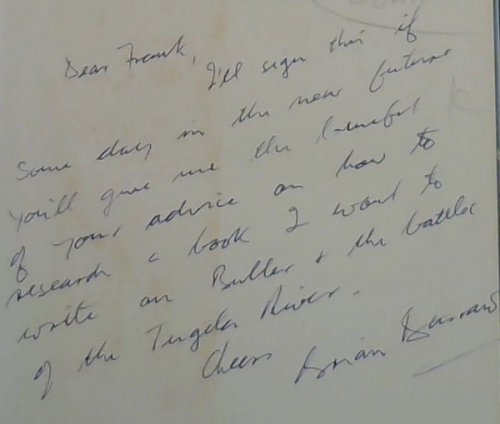 Dear Frank, I'll sign this if
Some day in the near future
You'll give me the benefit
of your advice on how to
research a book I want to
write on Buller & the battles
of the Tugela River.
Cheers Brian